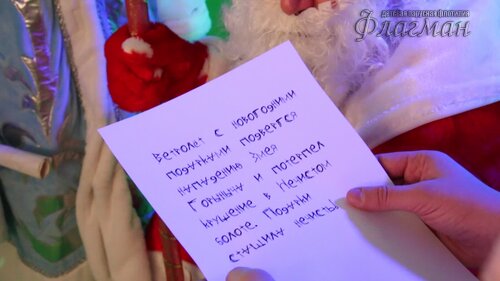 детская парусная флотилия
Флагман
Вертолет с новогодними
подарками подвергся
нападению Змея
Горыныча и потерпел
крушение в Нечистом
болоте. Подарки
стащила нечисть!